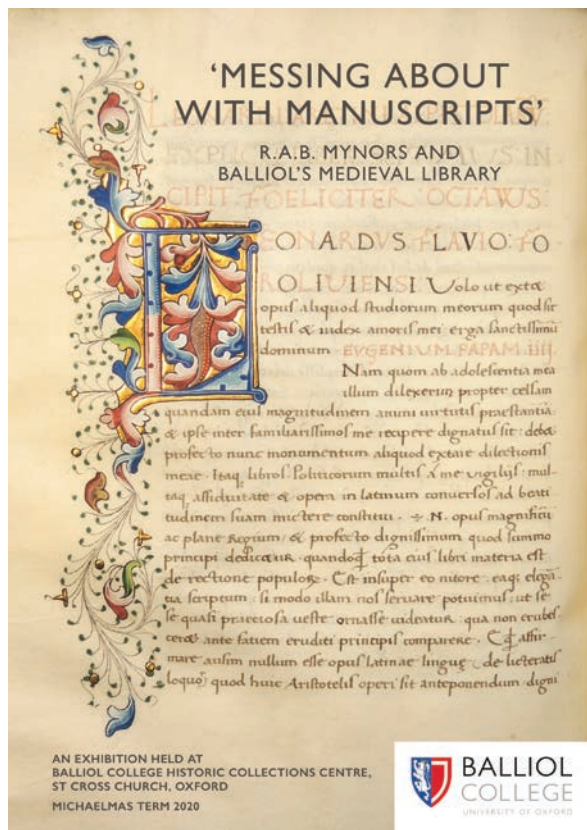 ‘MESSING ABOUT
WITH MANUSCRIPTS’
R.A.B. MYNORS AND
BALLIOL’S MEDIEVAL LIBRARY
CIPIT FOELICITER OCTAVUS:
LEONARDUS FLAVIO FO
ROLIVIENSI Volo ut extet
opus aliquod studiorum meorum quod sit
testis & iudex amoris mei erga sanctissimũ
dominum EVGENIVM PAPAM IIII.
Nam quom ab adolescentia mea
illum dilexerim propter
quandam eius magnitudinem animi uirtutis praestantiã
& ipse inter familiarissimos me recipere dignatus sit: debeo
profecto nunc monumentum aliquod extare dilectionis
meae. Itaq libros Politicorum multis a me uigilijs mul-
taq assiduitate & opera in latinum conuersos ad beati
tudinem suam mictere constitui. opus magnificũ
ac plane Regium & profecto dignissimum quod summo
principi tota eius libri materia est
de rectione Est insuper eo nitore eaq elegã
tia scriptum: si modo illam nos seruare potuimus: ut se
se quasi praeciosa ueste ornasse uideatur qua non erubes
ceret ante fatiem eruditi principis comparere. affir-
mare ausim nullum esse opus latinae linguę de licteratis
loquor quod huic Aristotelis operi sit anteponendum digni
AN EXHIBITION HELD AT
BALLIOL COLLEGE HISTORIC COLLECTIONS CENTRE,
ST CROSS CHURCH, OXFORD
MICHAELMAS TERM 2020
BALLIOL
COLLEGE
UNIVERSITY OF OXFORD